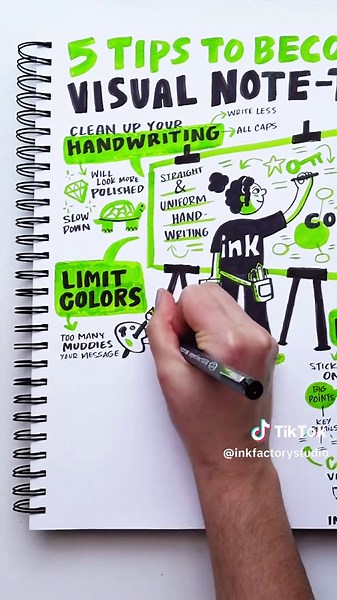 5 TIPS TO BECO
VISUAL NOTE-T
CLEAN UP YOUR
HANDWRITING
WRITE LESS
ALL CAPS
WILL
LOOK MORE
POLISHED
SLOW
DOWN
STRAIGHT
&
UNIFORM
HAND-
WRITING
ink
CO
LIMIT
COLORS
TOO MANY
MUDDIES
YOUR MESSAGE
STICK
ON
BIG
POINTS
KEY
TikTok
@inkfactorystudio